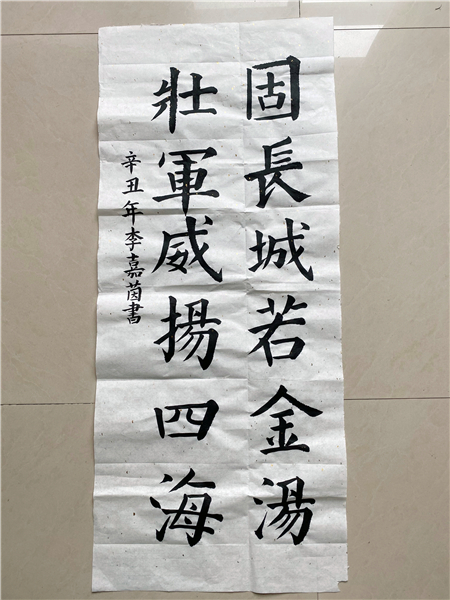 固長城若金湯
壯軍威揚四海
辛丑年李嘉茵書